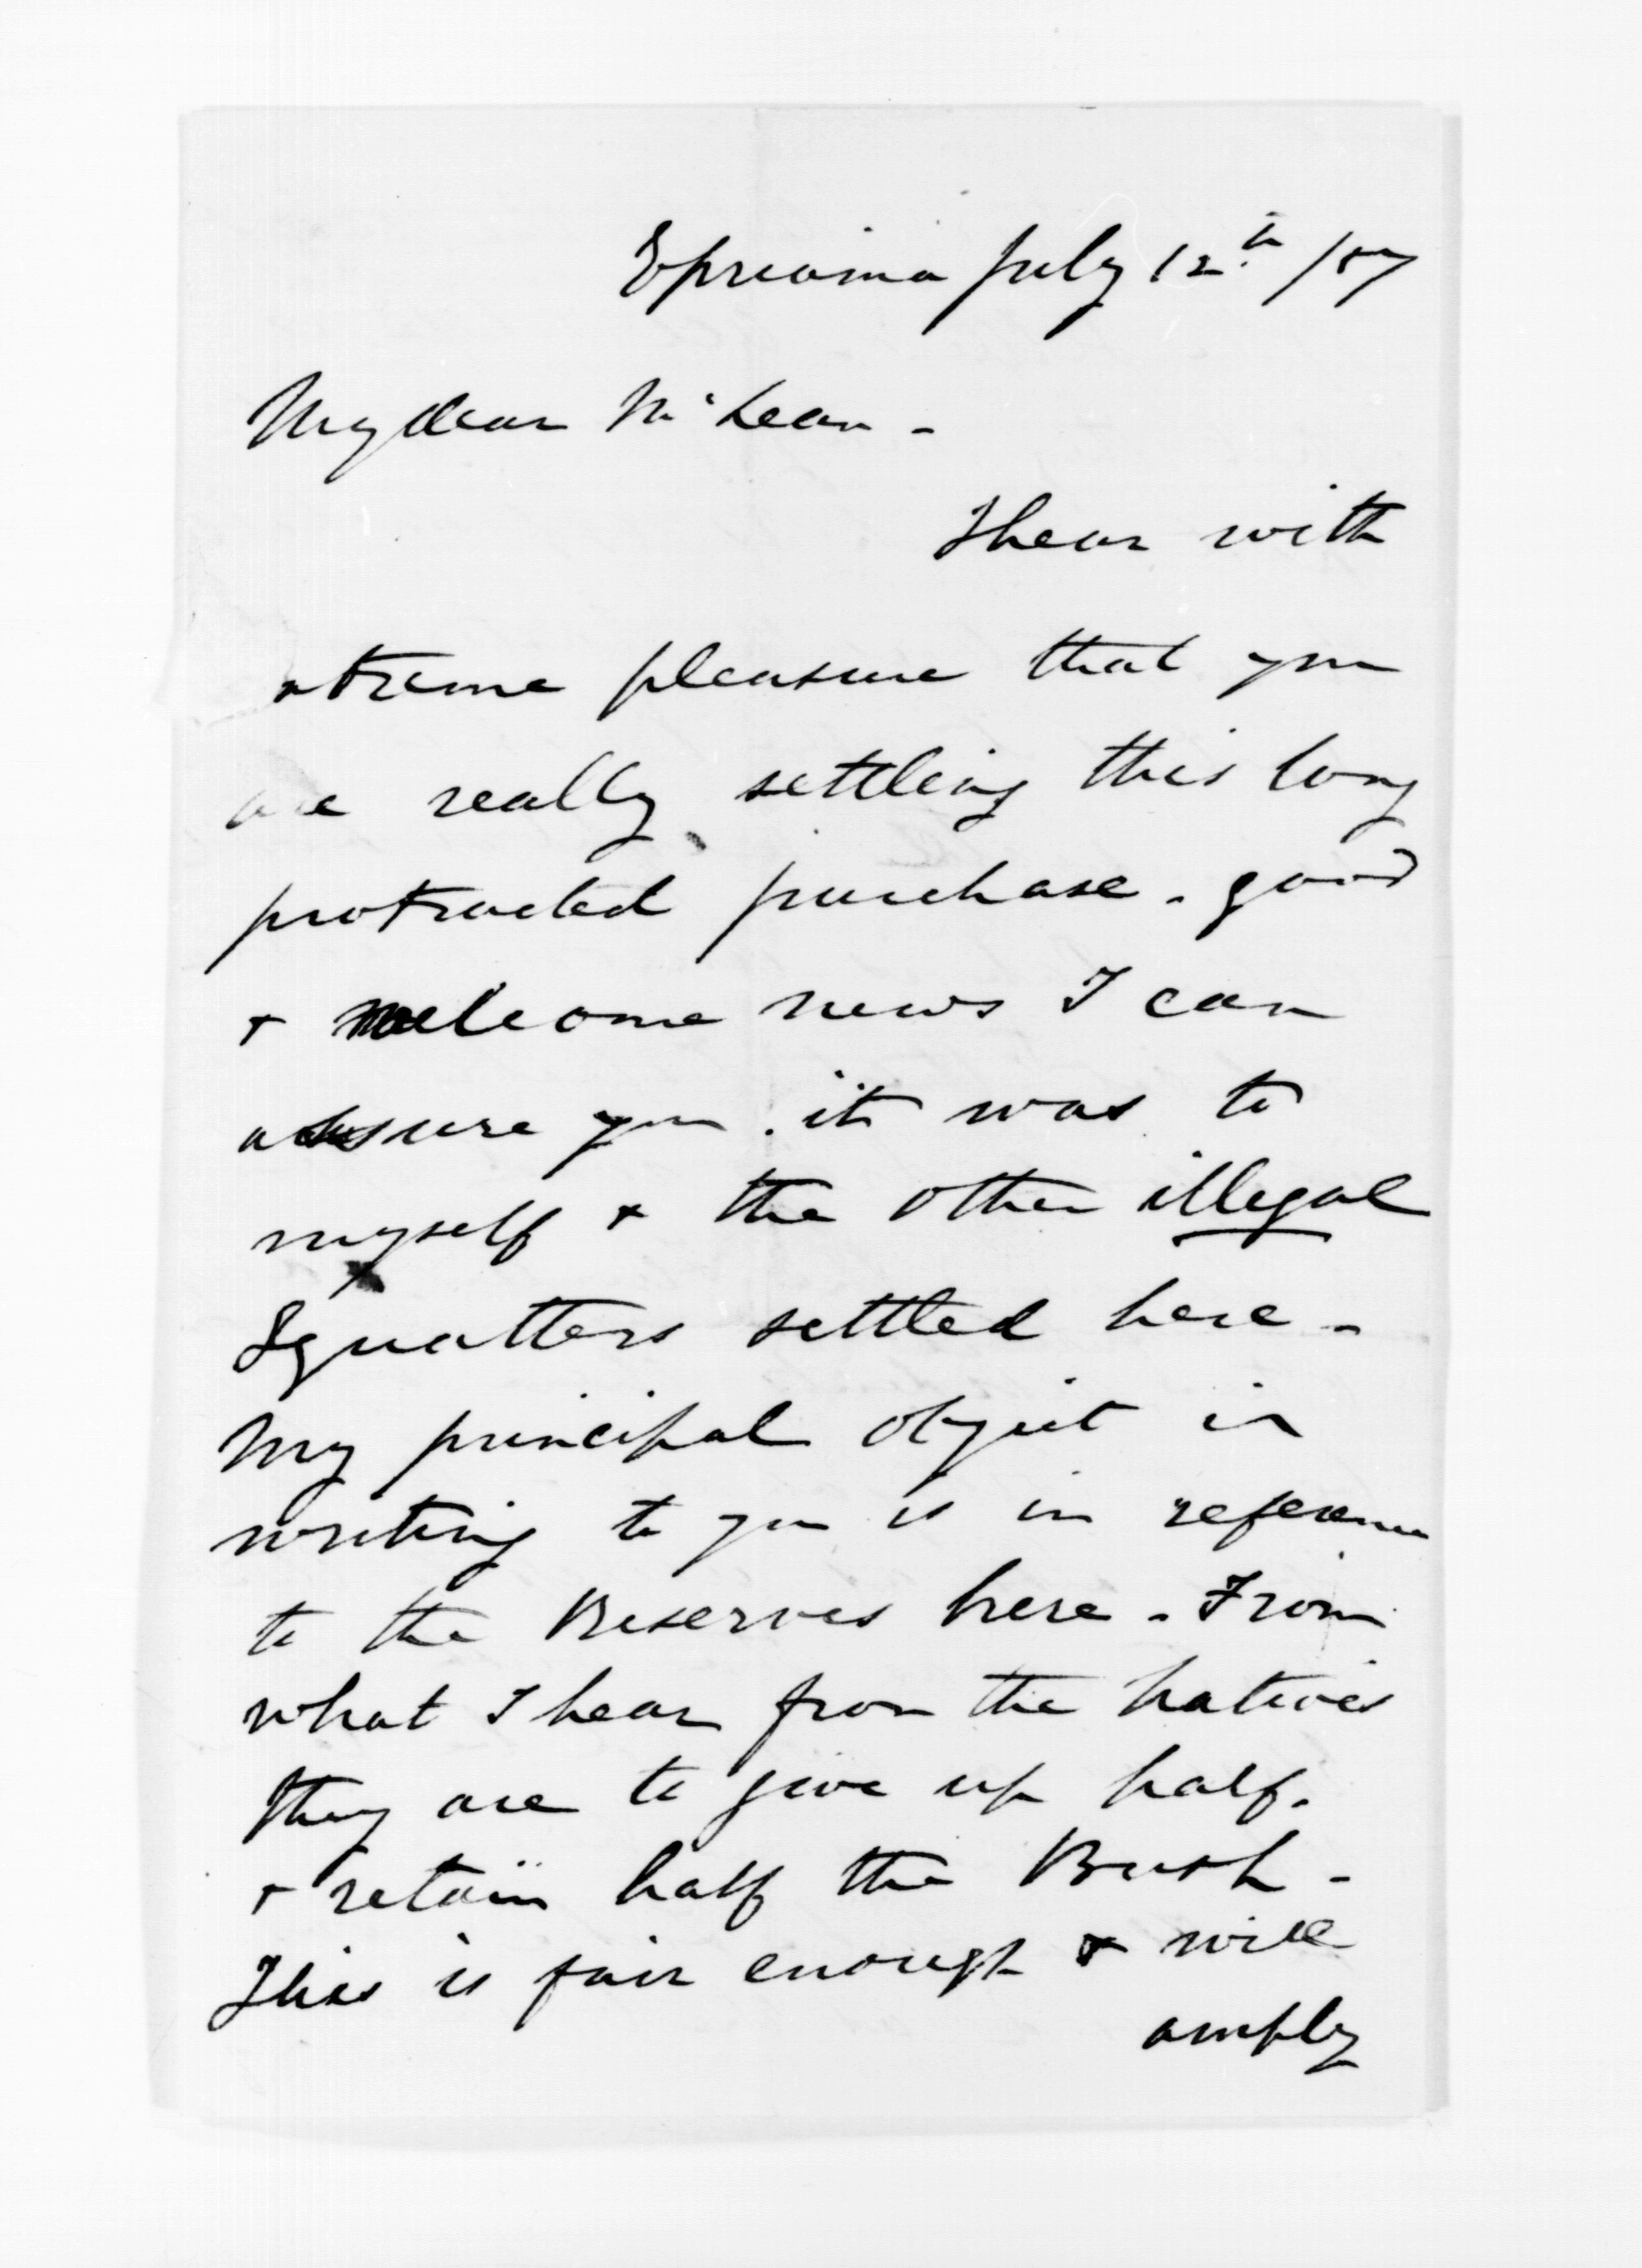 Epraima July 12th /57
My dear McLean -
I hear with
xtreme pleasure that you
are really settling this long
protracted purchase. good
& welcome news I can
assure you it was to
myself & the other illegal
Squatters settled here -
My principal object in
writing to you is in reference
to the Reserves here - From
what I hear from the natives
they are to give up half.
& retain half the Bush -
This is fair enough & will
amply